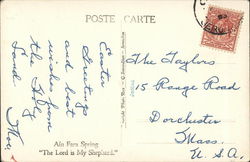 POSTE CARTE
Easter
Greetings
and best
wishes from
the Holy
Land
The Taylors
15 Range Road
Dorchester
Mass.
U.S.A
Ain Fara Spring
"The Lord is My Shepherd."